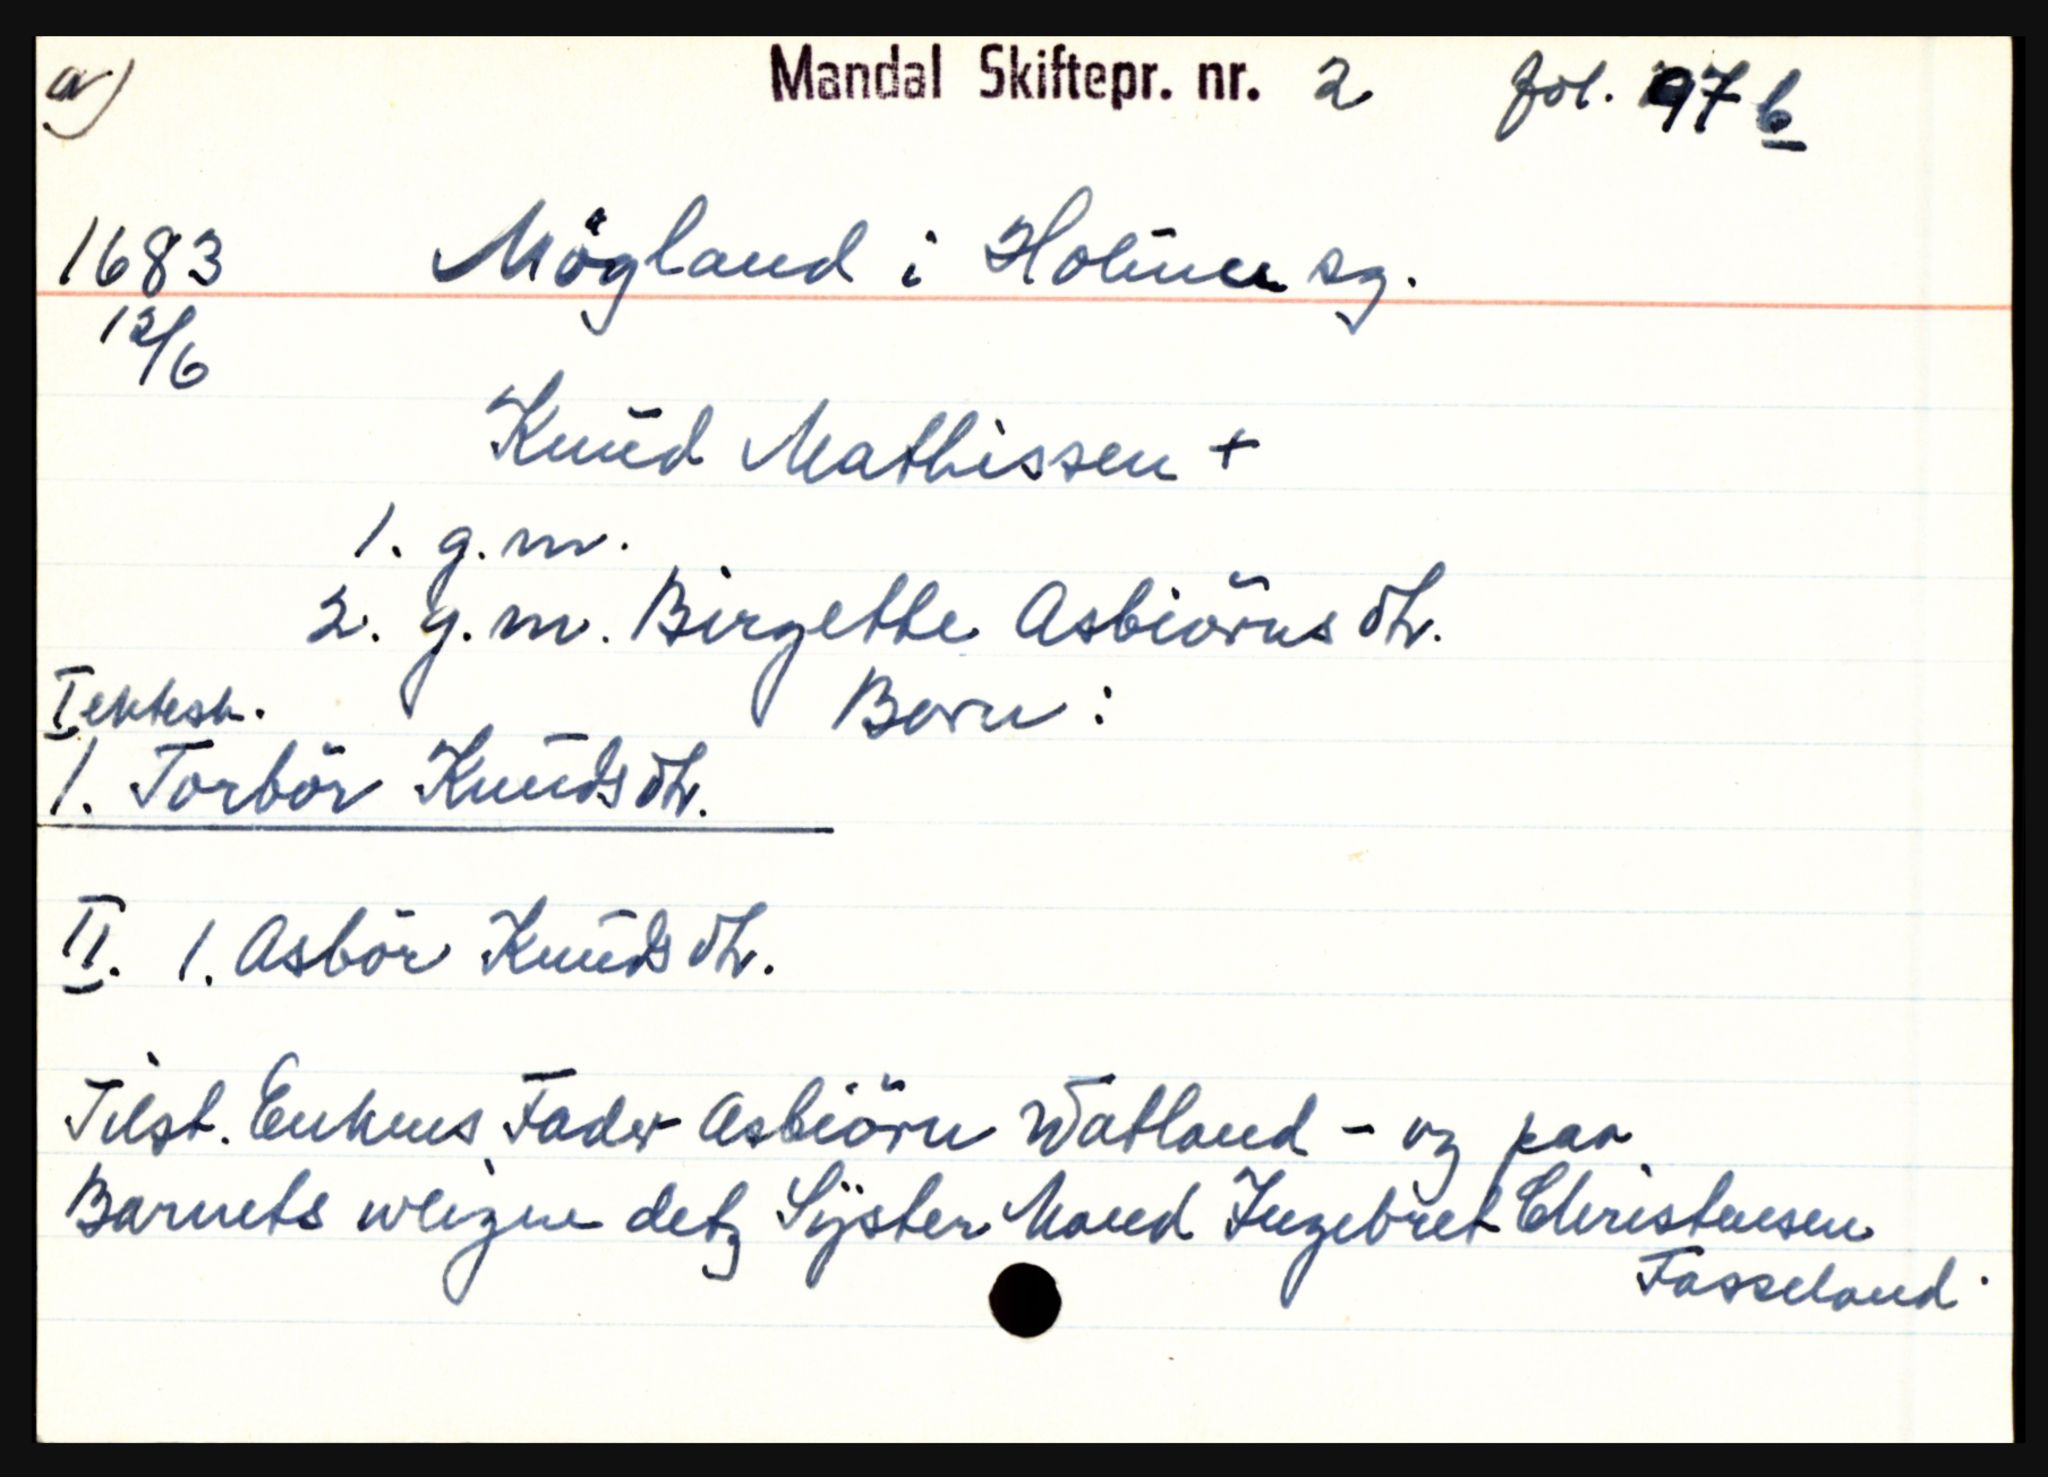 a) Mandal Skiftepr. nr. 2 fol. 97 b
1683 Mögland i Holum sg.
12/6
Knud Mathissen +
1. g.m.
2. g.m. Birgette Asbiörns dtr.
I ektesk. Born:
1. Torbör Knuds dtr.
II. 1. Asbör Knuds dtr.
Tilst. Enkens Fader Asbiörn Watland - og paa
Barnets weigne detz Syster Mand Ingebret Christensen
Fasseland.